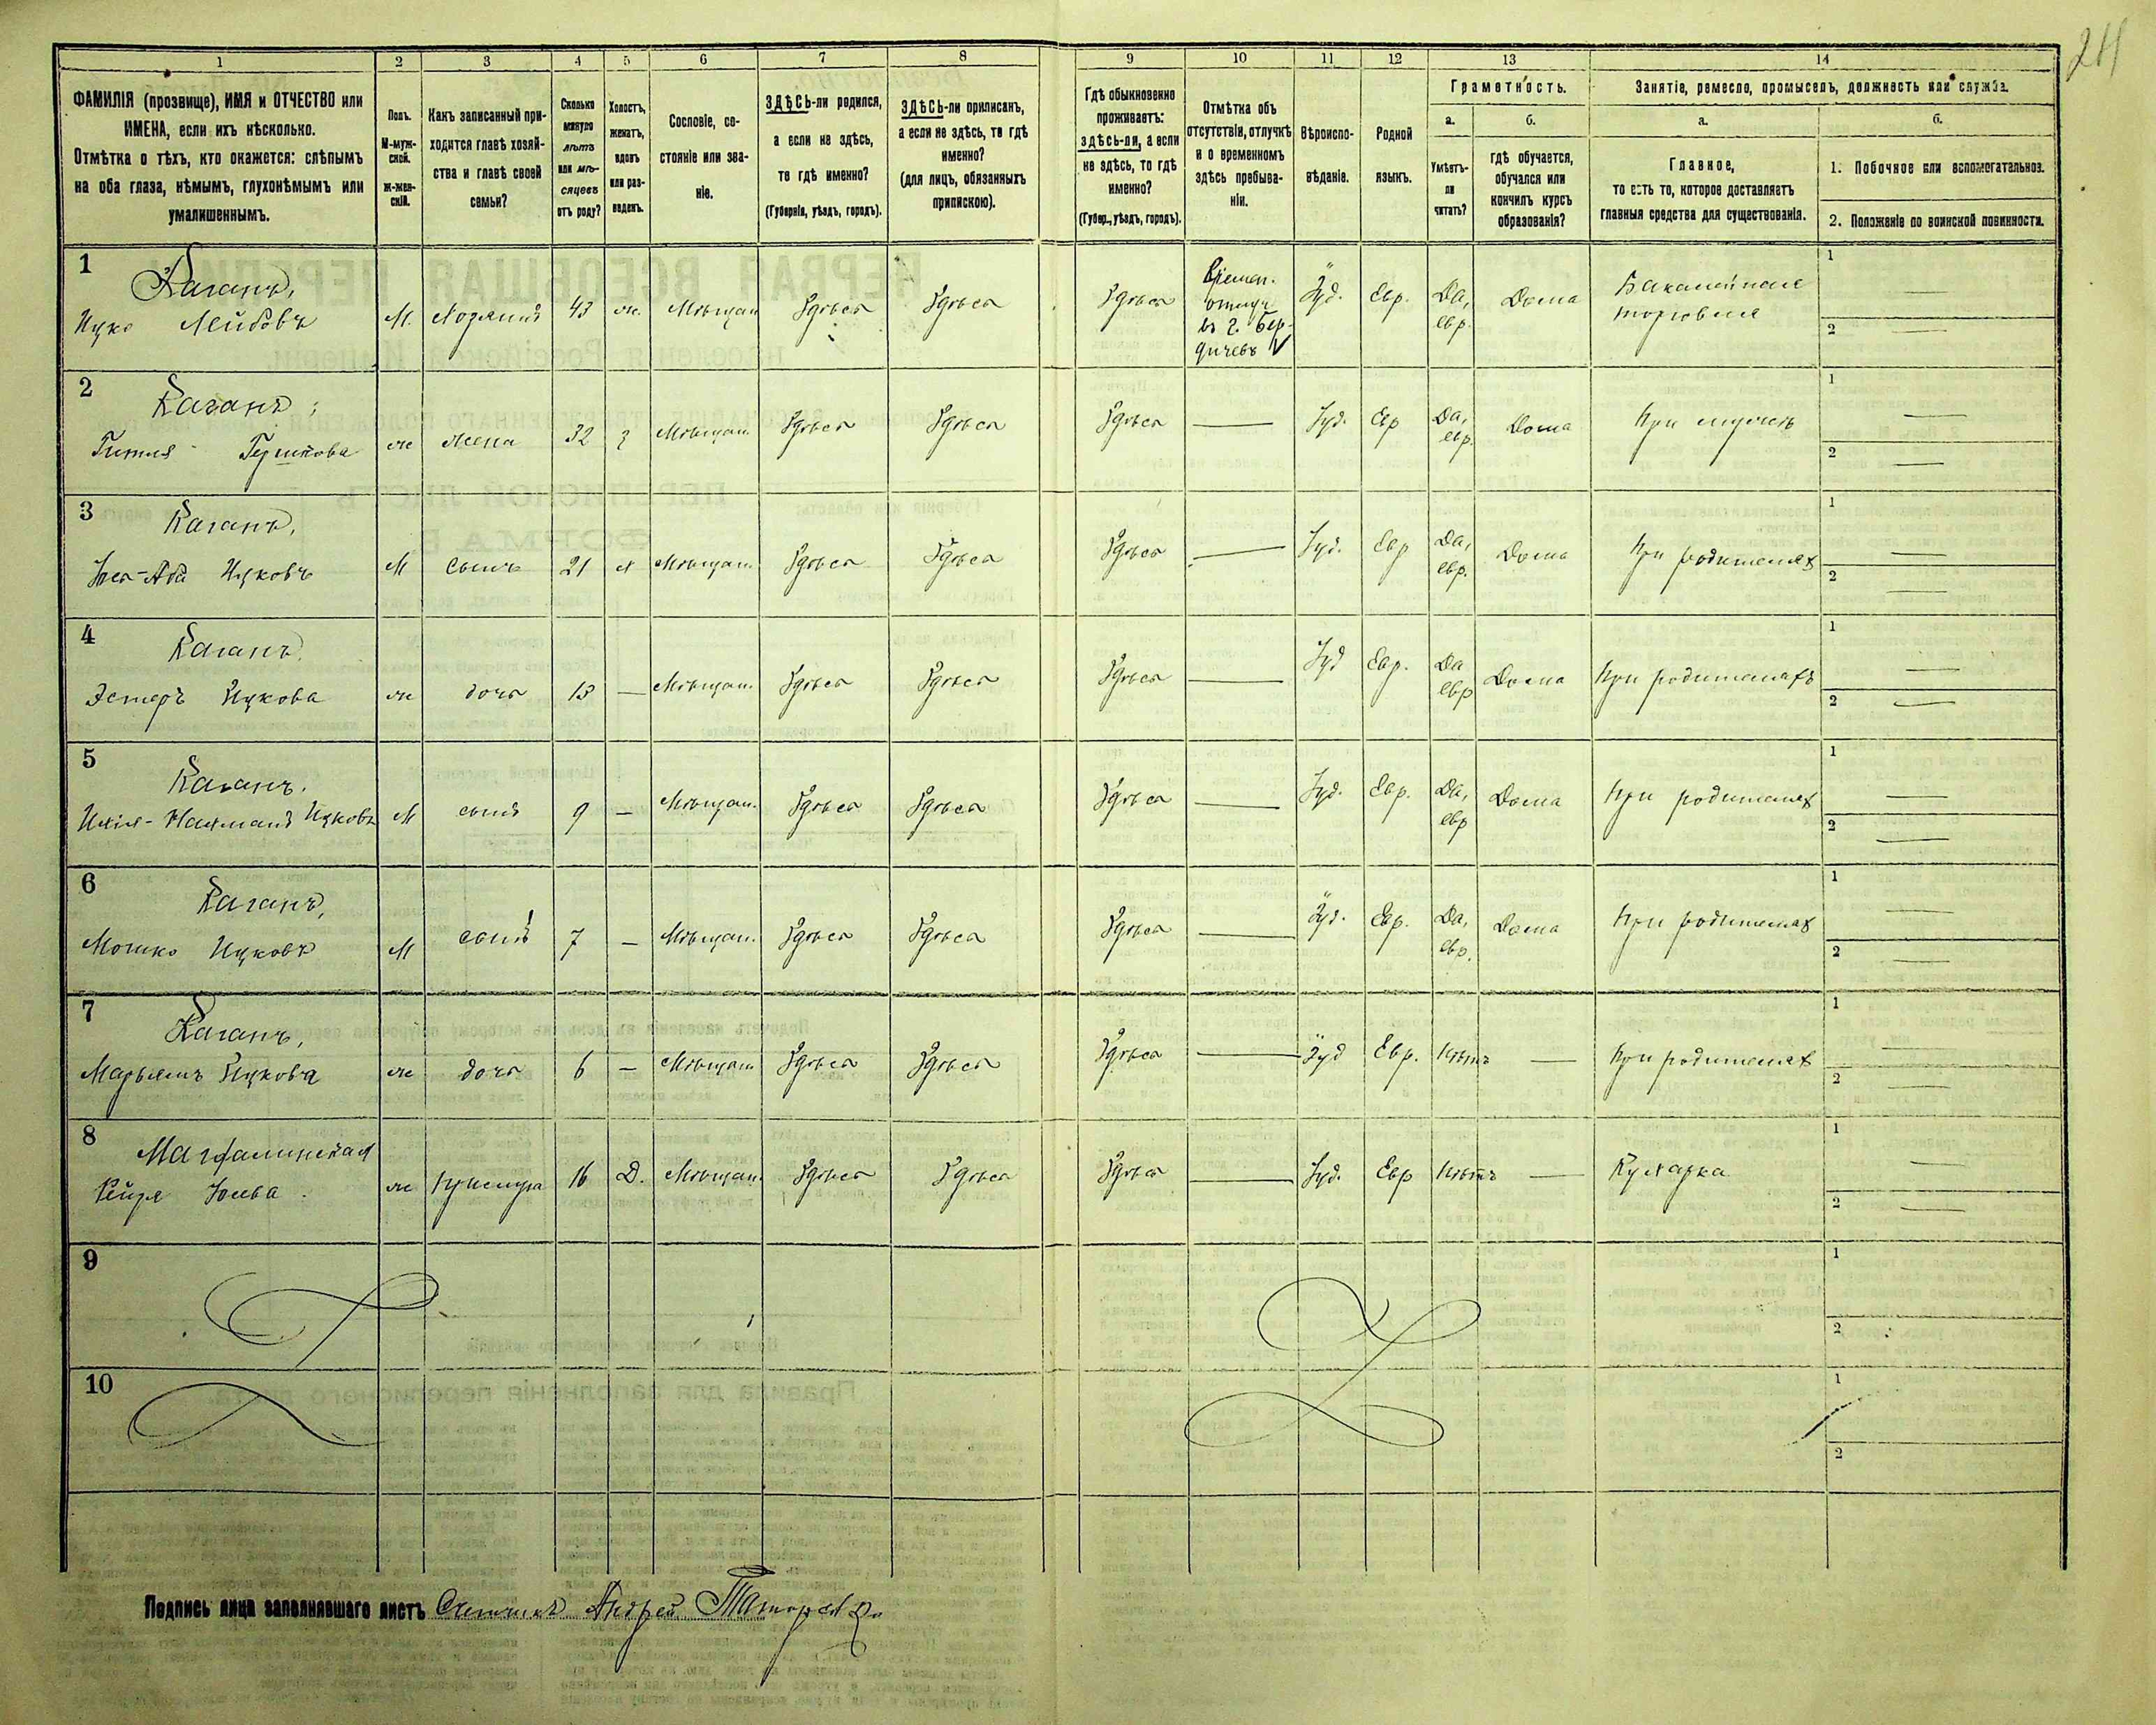 24
1 2 3 4 5 6 7 8 9 10 11 12 13 14
ФАМИЛІЯ (прозвище), ИМЯ и ОТЧЕСТВО или
ИМЕНА, если ихъ нѣсколько.
Отмѣтка о тѣхъ, кто окажется: слѣпымъ
на оба глаза, нѣмымъ, глухонѣмымъ или
умалишеннымъ.
Полъ.
М-муж-
ской.
Ж-жен-
скій.
Какъ записанный при-
ходится главѣ хозяй-
ства и главѣ своей
семьи?
Сколько
минуло
лѣтъ
или мѣ-
сяцевъ
отъ роду?
Холостъ,
женатъ,
вдовъ
или раз-
веденъ.
Сословіе, со-
стояніе или зва-
ніе.
ЗДѢСЬ-ли родился,
а если не здѣсь,
то гдѣ именно?
(Губернія, уѣздъ, городъ).
ЗДѢСЬ-ли приписанъ,
а если не здѣсь, то гдѣ
именно?
(для лицъ, обязанныхъ
припискою).
Гдѣ обыкновенно
проживаетъ:
здѣсь-ли, а если
не здѣсь, то гдѣ
именно?
(Губер., уѣздъ, городъ).
Отмѣтка объ
отсутствіи, отлучкѣ
и о временномъ
здѣсь пребыва-
ніи.
Вѣроиспо-
вѣданіе.
Родной
языкъ.
Грамотность.
а.
Умѣетъ-
ли
читать?
б.
гдѣ обучается,
обучался или
кончилъ курсъ
образованія?
Занятіе, ремесло, промыселъ, должность или служба.
а.
Главное,
то есть то, которое доставляетъ
главныя средства для существованія.
б.
1. Побочное или вспомогательное.
2. Положеніе по воинской повинности.
1
Каганъ,
Ицко Лейбовъ М. Хозяинъ 43 ж. Мѣщан Здѣсь Здѣсь Здѣсь
Времен.
отлуч
въ г. Бер-
дичевъ
Іуд. Евр. Да,
евр. Дома Бакалейная
торговля
1
2
2
Каганъ,
Гитля Гершкова ж жена 32 з Мѣщан. Здѣсь Здѣсь Здѣсь — Іуд. Евр Да,
евр. Дома При мужѣ
1
2
3
Каганъ,
Ицковъ М сынъ 21 х Мѣщан. Здѣсь Здѣсь Здѣсь — Іуд. Евр Да,
евр. Дома При родителяхъ
1
2
4
Каганъ
Эстеръ Ицкова ж дочь 13 — Мѣщан. Здѣсь Здѣсь Здѣсь — Іуд Евр. Да
евр Дома При родителяхъ
1
2
5
Каганъ.
Нахманъ Ицковъ М сынъ 9 — Мѣщан. Здѣсь Здѣсь Здѣсь — Іуд. Евр. Да,
евр Дома При родителях
1
2
6
Каганъ,
Мошко Ицковъ М сынъ 7 — Мѣщан. Здѣсь Здѣсь Здѣсь — Іуд. Евр. Да,
евр. Дома При родителях
1
2
7
Каганъ,
Марьямъ Ицкова ж дочь 6 — Мѣщан Здѣсь Здѣсь Здѣсь — Іуд Евр. Нѣтъ — При родителях
1
2
8
ж прислуга 16 Д. Мѣщан. Здѣсь Здѣсь Здѣсь — Іуд. Евр Нѣтъ — Кухарка
1
2
9
1
2
10
1
2
Подпись лица заполнявшаго листъ Счетчикъ Андрей